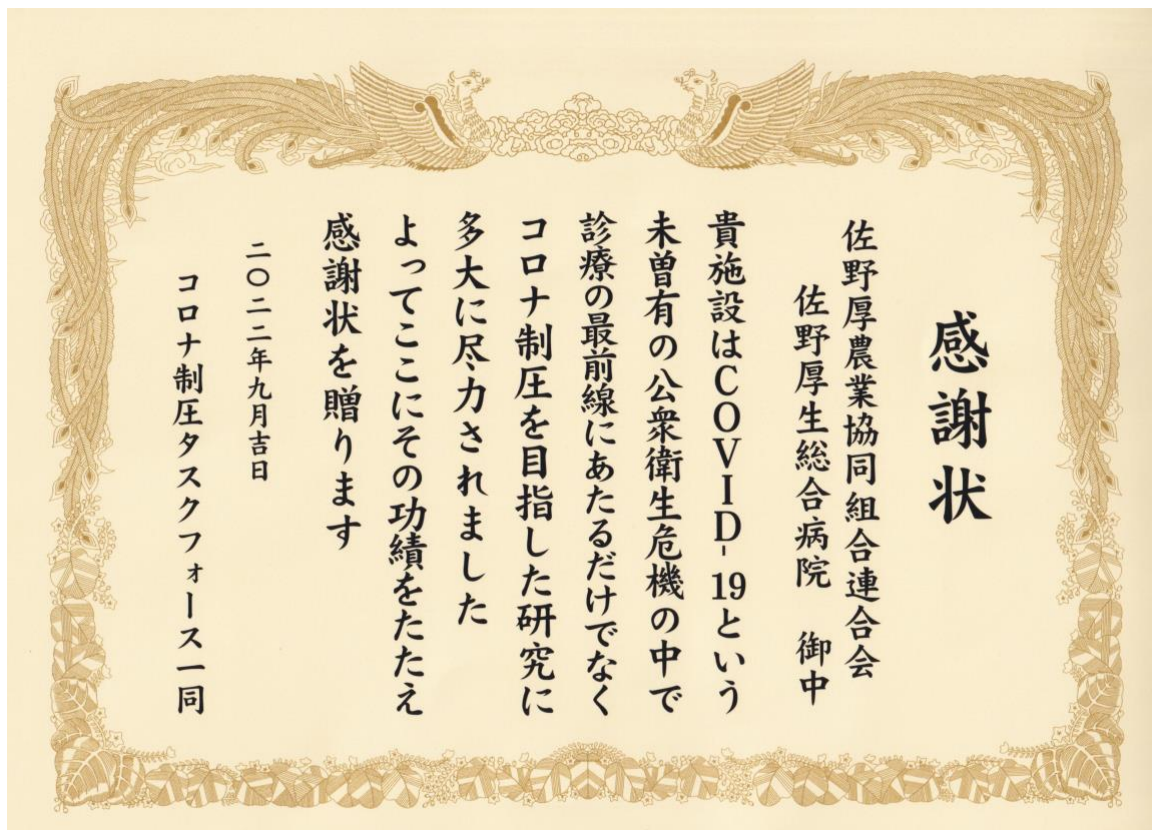 感謝状
佐野厚農業協同組合連合会
佐野厚生総合病院　御中
貴施設はCOVID-19という
未曽有の公衆衛生危機の中で
診療の最前線にあたるだけでなく
コロナ制圧を目指した研究に
多大に尽力されました
よってここにその功績をたたえ
感謝状を贈ります
二〇二二年九月吉日
コロナ制圧タスクフォース一同